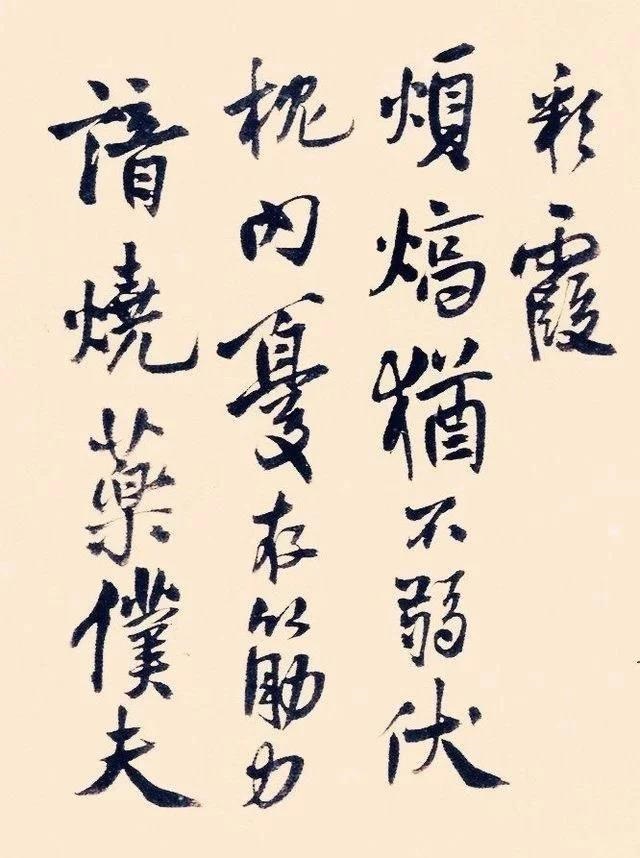 彩霞
煩熇猶不弱伏
枕内憂存筋力
諳燒藥僕夫